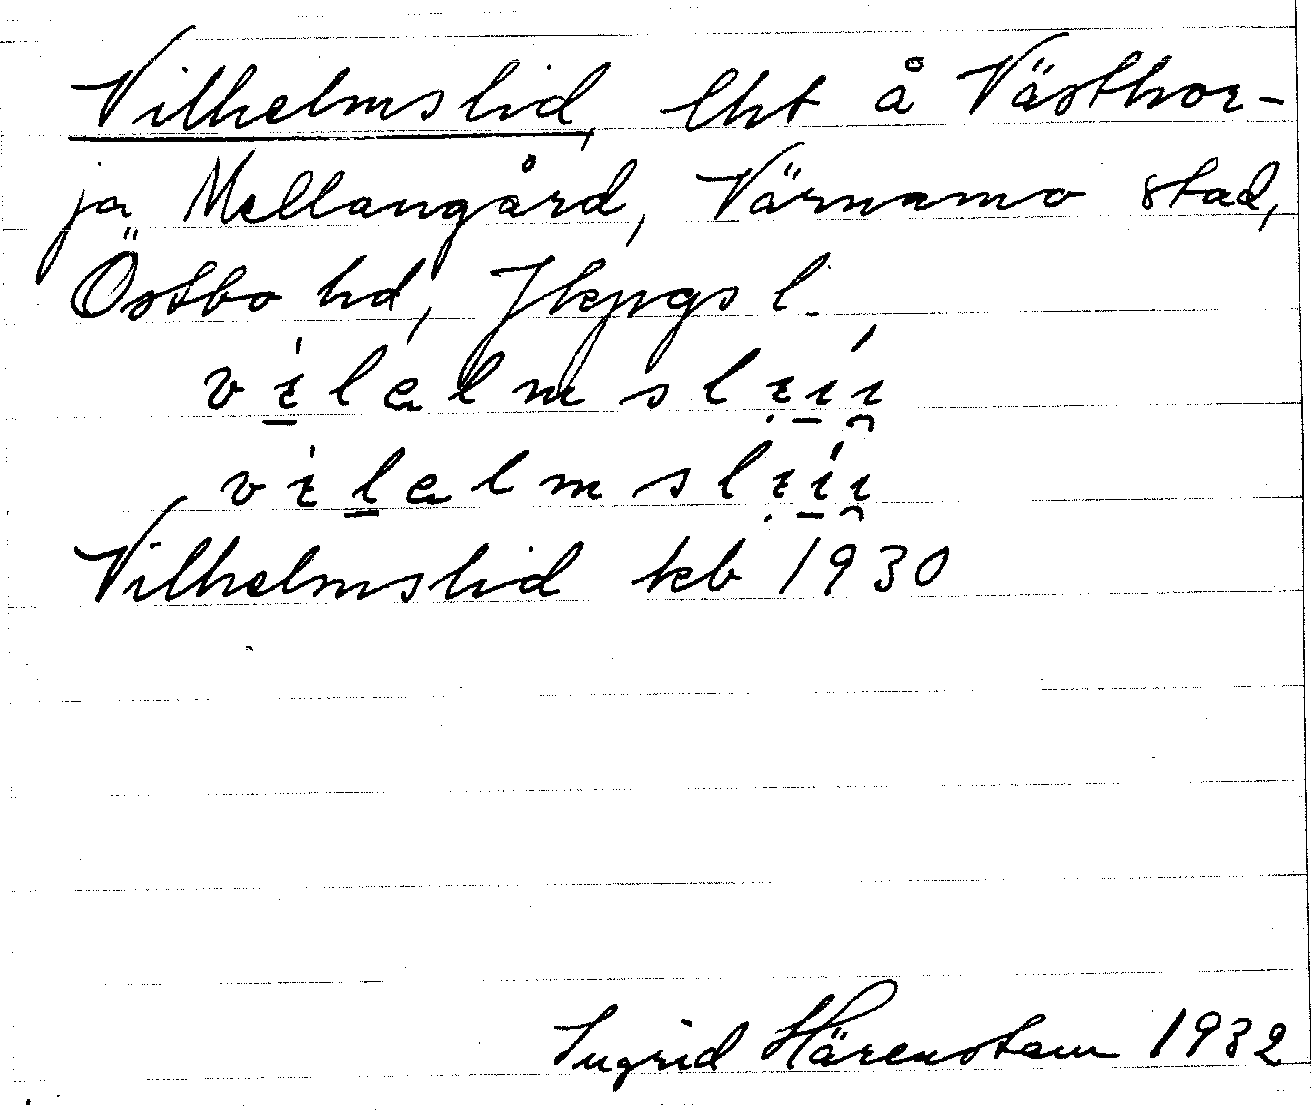 Vilhelmslid, lht å Västhor-
ja Mellangård, Värnamo stad,
Östbo hd, Jkpgs l.
Vilhelmslid kb 1930
Ingrid Härenstam 1932